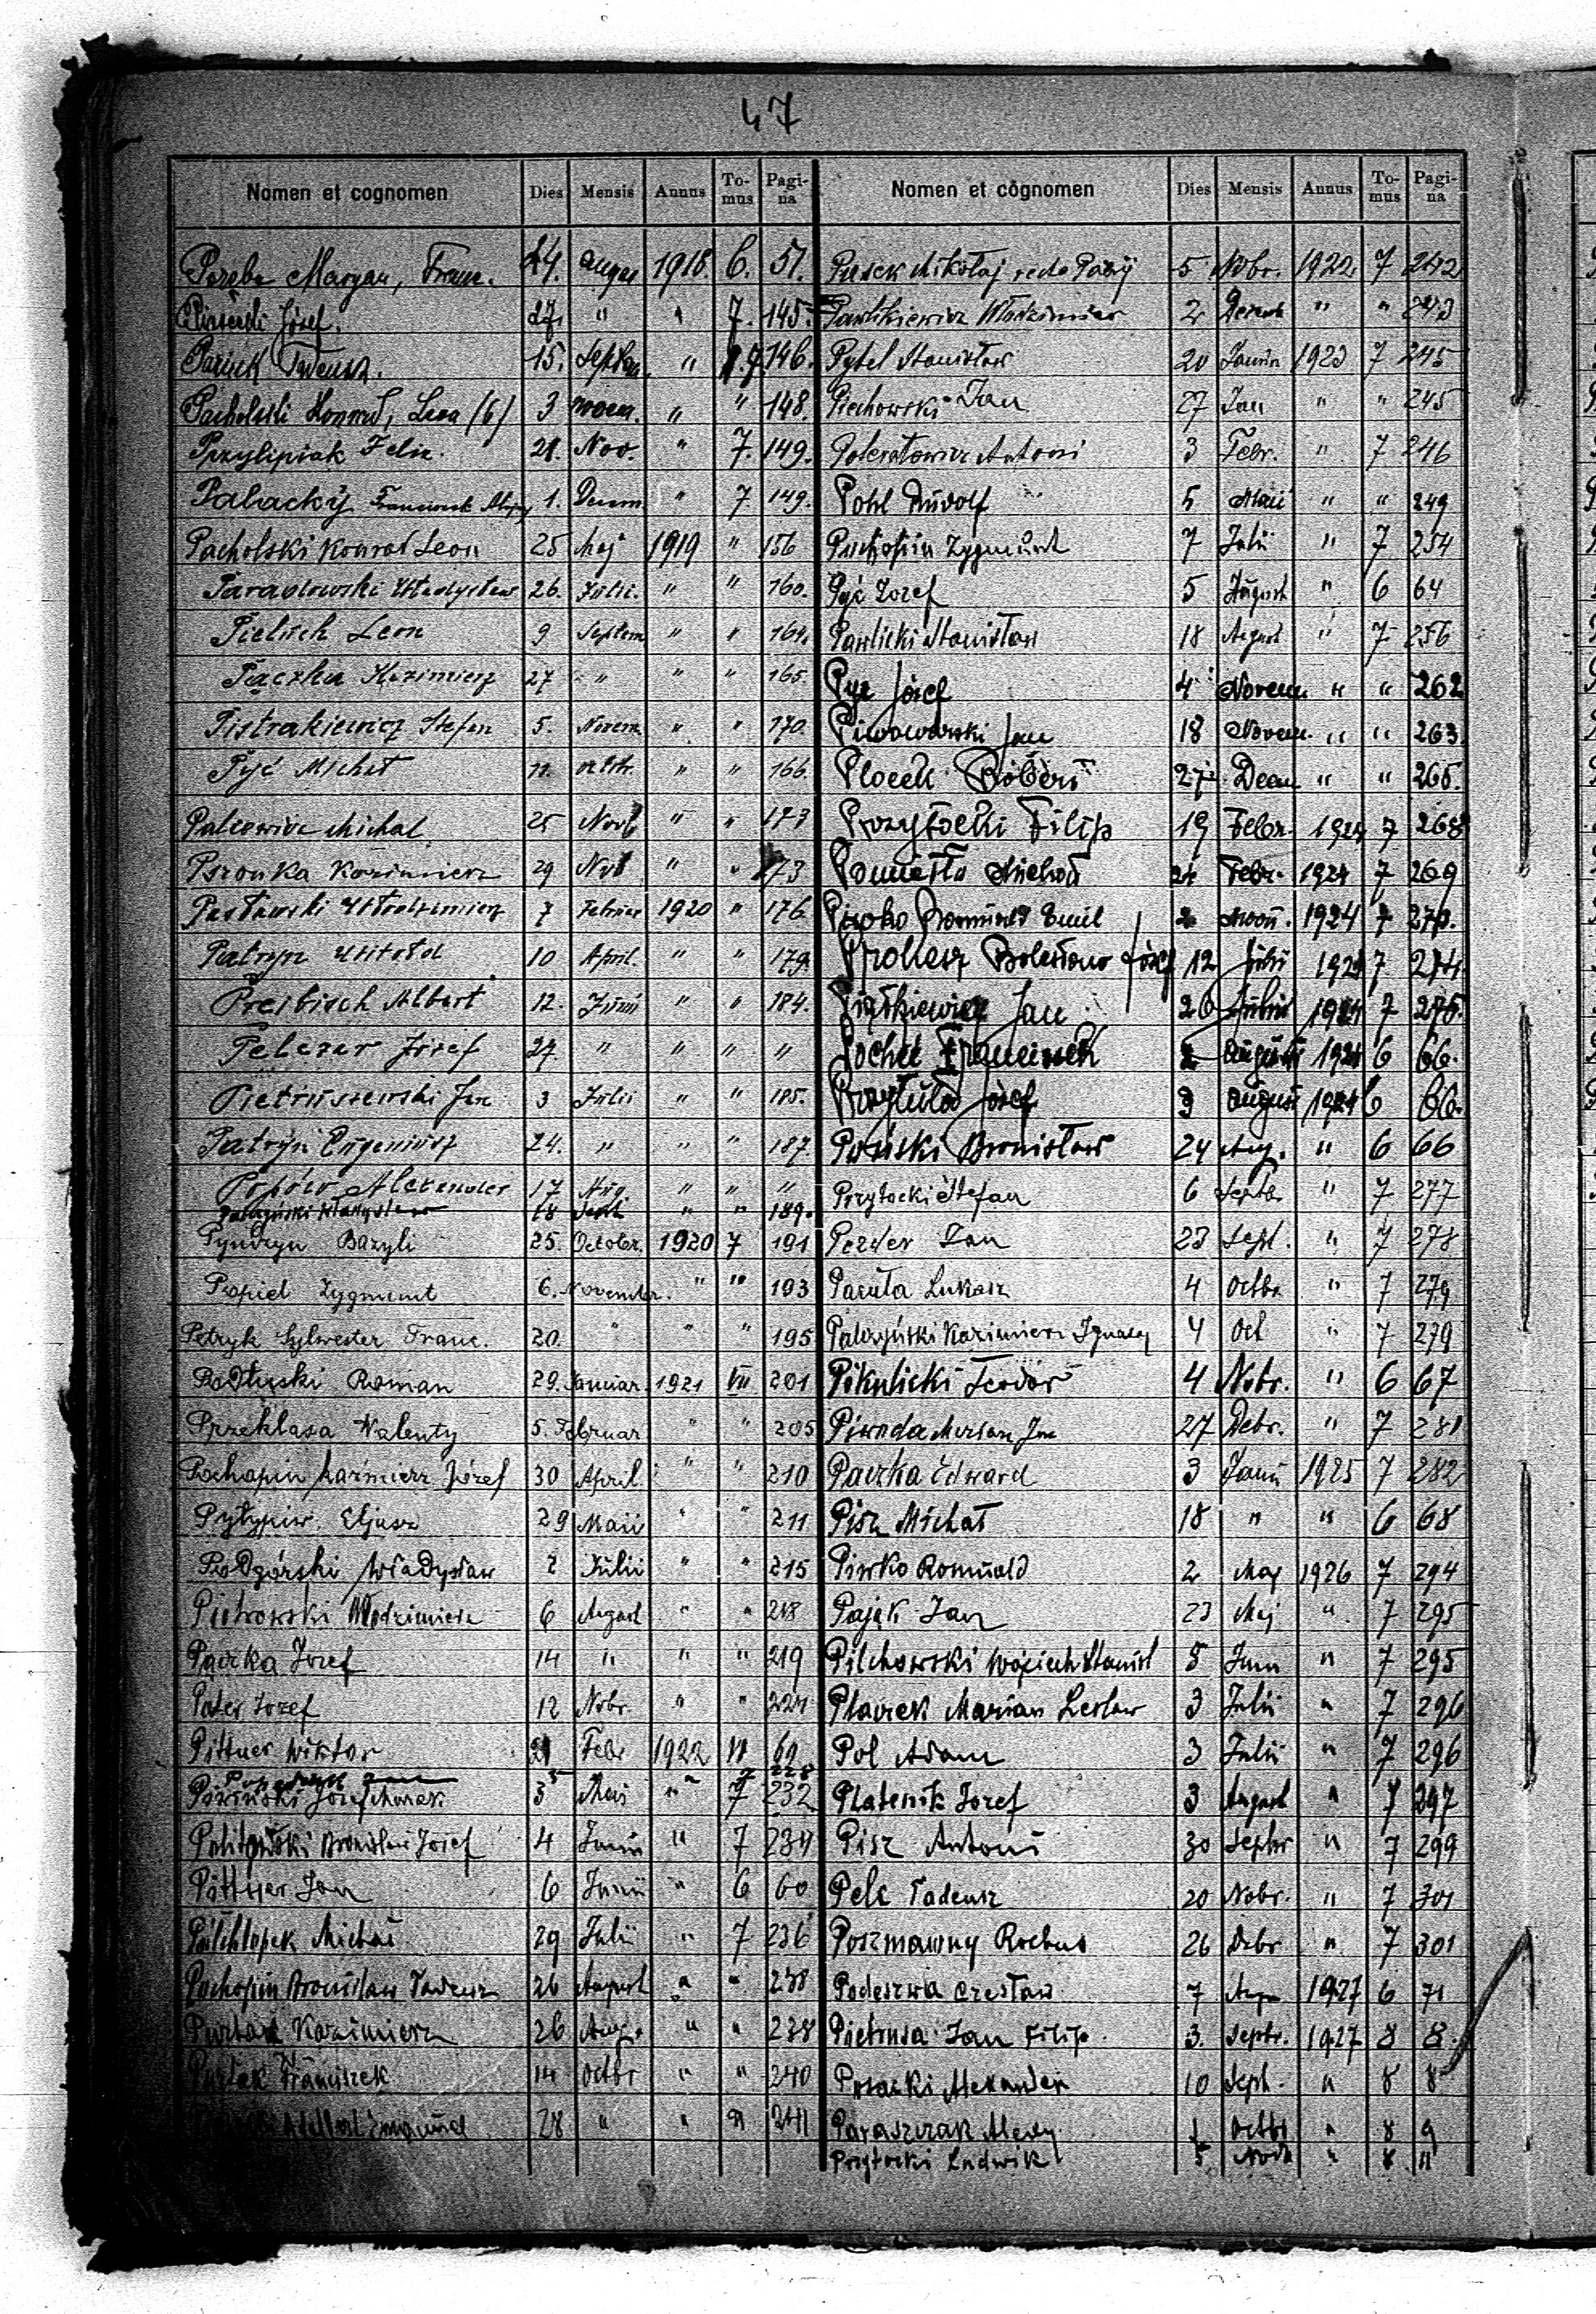 47
Nomen et cognomen Dies Mensis Annus To-mus Pagi-na Nomen et cognomen Dies Mensis Annus To-mus Pagi-na
Poręba Maryan, Franc. 24. augus 1918. 6. 51.
Józef. 27. " " 7. 145.
Tadeusz. 15. Septem. " 7 146.
Pacholski Konrad, Leon (6) 3 " " 148.
Przylipiak Felix. 21. Nov. " 7. 149.
Palacký Franciszek 1. Decem. " 7 149.
Pacholski Konrad Leon 25 Maj 1919 " 156
Paradowski Władysław 26. Julii. " " 160.
Pieluch Leon 9 Septem " " 161.
Pączka Kazimierz 27 " " " 165
Pistrakiewicz Stefan 5. Novem " " 170.
Pyć Michał 11. octobr. " " 166
Palcewicz Michał 25 Novb " " 173
Pszonka Kazimierz 29 Novb " " 173
Pastawski Włodzimierz 7 Februar 1920 " 176
Patryn Witold 10 April. " " 179.
Preibisch Albert 12. Junii " " 184.
Pelczar Józef 27 " " " "
Pietruszewski Jan 3 Julii " " 185.
Patryn Eugeniusz 24. " " " 187
Popów Alexander 17 Aug " " "
Władysław 18 Sept " " 189.
Pyndzyn Bazyli 25. October. 1920 7 191
Propiel Zygmunt 6. November. " " 193
Petryk Sylwester Franc. 20. " " " 195
Podłuski Roman 29. Januar. 1921 VII 201
Przeklasa Walenty 5. Februar " " 205
Pochopin Kazimierz Józef 30 April " " 210
Pyłypiw Eljasz 29 Maii " " 211
Podgórski Władysław 2 Julii " " 215
Piotrowski Włodzimierz 6 August " " 218
Paczka Józef 14 " " " 219
Pater Józef 12 Nobr. " " 224
Pittner Wiktor 21 Febr 1922 VI 60
Józef Marek 3 Maii " 7 232
Bronisław Józef 4 Junii " 7 234
Pittner Jan 6 Junii " 6 60
Półchłopek Michał 29 Julii " 7 236
Pochopin Bronisław Tadeusz 26 August " " 238
Kazimierz 26 Aug. " " 238
Franciszek 14 Octbr " " 240
28 " " " 241
Pasek Mikołaj recte Pazij 5 Nobr. 1922. 7 242
Pawlikiewicz Włodzimierz 2 Decemb " " 243
Pytel Stanisław 20 Januar 1923 7 245
Piechowski Jan 27 Jan " " 245
Antoni 3 Febr. " 7 246
Pohl Rudolf 5 Maii " " 249
Pochopin Zygmunt 7 Julii " 7 254
Pyć Józef 5 August " 6 64
Pawlicki Stanisław 18 August " 7 256
Pyz Józef 4 Novem " " 262
Piwowarski Jan 18 Novem. " " 263.
Plocek Robert 27 Decem " " 265.
Przytocki Filip 19 Febr. 1924 7 268
Michał 24 Febr. 1924 7 269
Piwko Romuald Emil 2 1924 7 270.
Prokesz Bolesław Józef 12 Julii 1924 7 274.
Piątkiewicz Jan 20 Julii 1924 7 275.
Franciszek 2 August 1924 6 66.
Przytuła Józef 3 August 1924 6 66.
Bronisław 24 Aug. " 6 66
Przytocki Stefan 6 Septbr. " 7 277
Pezder Jan 23 Sept. " 7 278
Pacuła Łukasz 4 Octbr. " 7 279
Palczyński Kazimierz Ignacy 4 Oct " 7 279
Pikulicki Teodor 4 Nobr. " 6 67
Piwoda Marian Jan 27 Debr. " 7 281
Paczka Edward 3 Janii 1925 7 282
Pisz Michał 18 " " 6 68
Piwko Romuald 2 Maj 1926 7 294
Pająk Jan 23 Maj " 7 295
Pilchowski Wojciech Stanisł 5 Juni " 7 295
Placzek Marian Lesław 3 Julii " 7 296
Pol Adam 3 Julii " 7 296
Platenik Józef 3 August " 7 297
Pisz Antoni 30 Septbr " 7 299
Pelc Tadeusz 20 Nobr. " 7 301
Poszmawny Rochus 26 Debr " 7 301
Podeszwa Czesław 7 Aug 1927 6 71
Pietrusa Jan Filip. 3. Septbr. 1927 8 8.
Posacki Alexander 10 Sept. " 8 8
Paraszczak Alexy 1 Octbr " 8 9
Przytocki Ludwik 5 Novb " 8 11